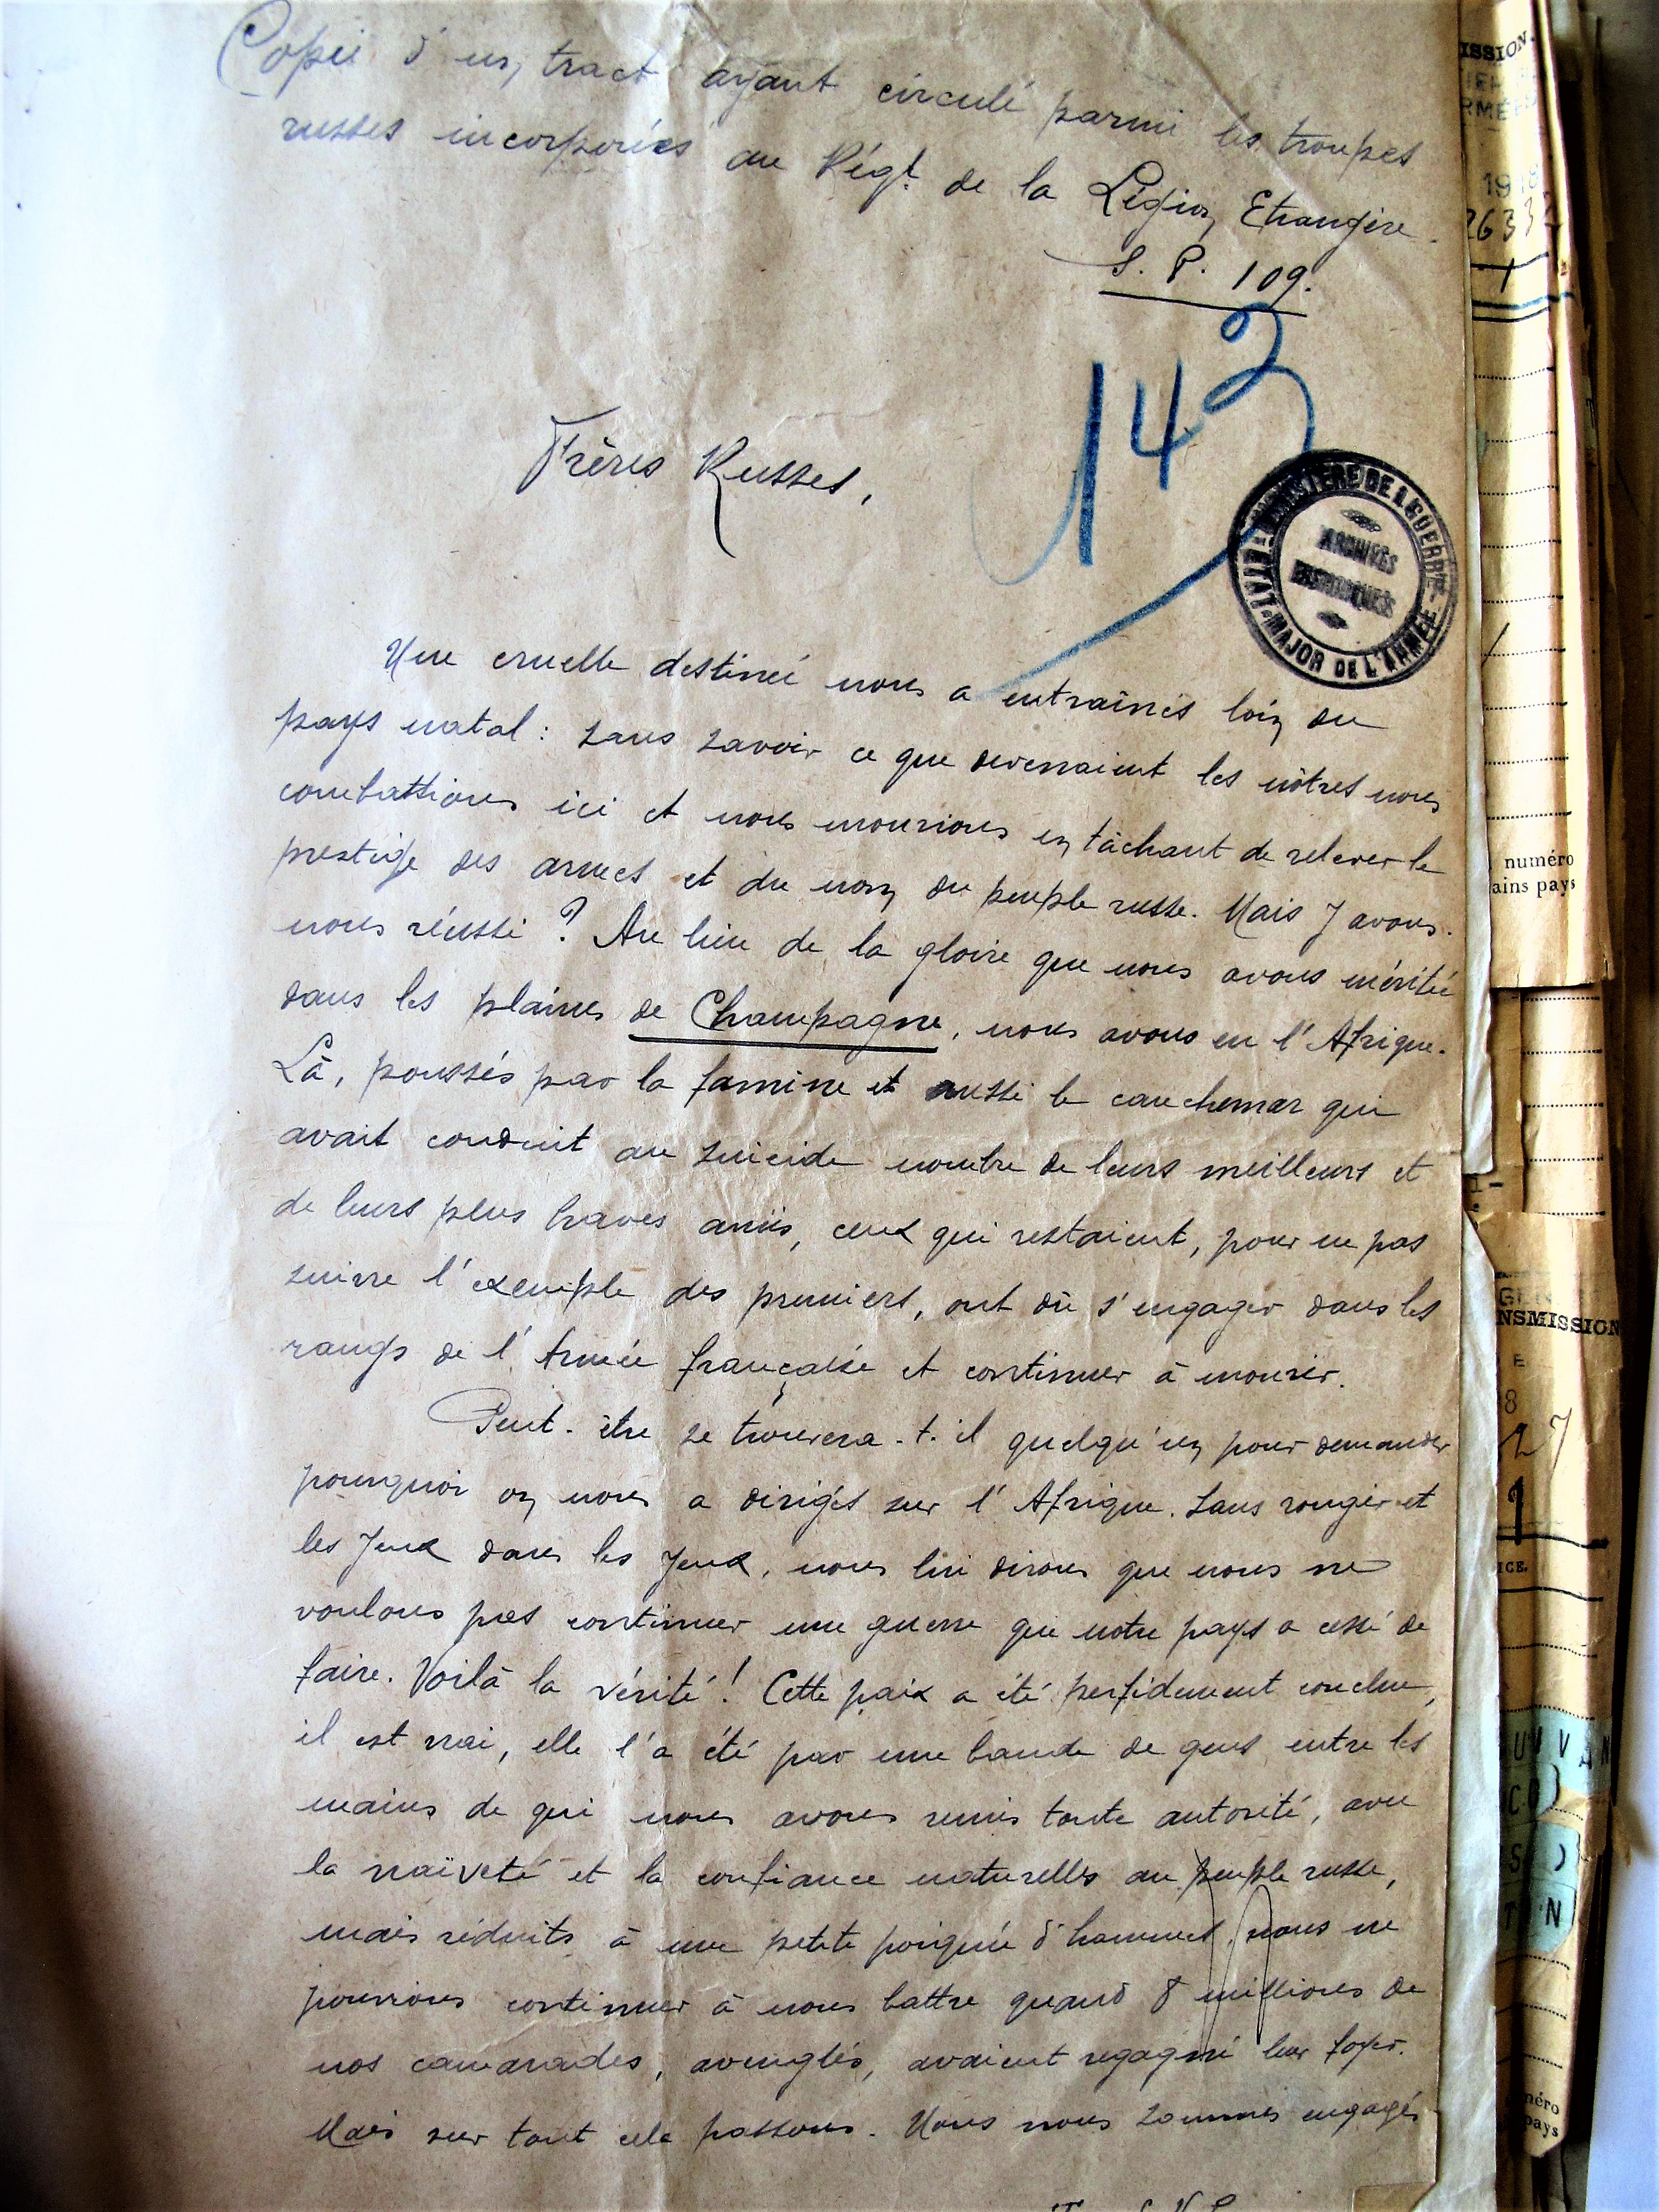 Copie d'un tract ayant circulé parmi les troupes
russes incorporées au Régt de la Légion Etrangère.
S. P. 109.
142
Frères Russes,
MINISTERE DE LA GUERRE
ETAT-MAJOR DE L'ARMÉE
ARCHIVES
HISTORIQUES
Une cruelle destinée nous a entraînés loin du
pays natal : sans savoir ce que devenaient les nôtres nous
combattions ici et nous mourions en tâchant de relever le
prestige des armes et du nom du peuple russe. Mais y avons-
nous réussi ? Au lieu de la gloire que nous avons méritée
dans les plaines de Champagne, nous avons eu l'Afrique.
Là, poussés par la famine et aussi le cauchemar qui
avait conduit au suicide nombre de leurs meilleurs et
de leurs plus braves amis, ceux qui restaient, pour ne pas
suivre l'exemple des premiers, ont dû s'engager dans les
rangs de l'Armée française et continuer à mourir.
Peut-être se trouvera-t-il quelqu'un pour demander
pourquoi on nous a dirigés sur l'Afrique. Sans rougir et
les yeux dans les yeux, nous lui dirons que nous ne
voulons pas continuer une guerre que notre pays a cessé de
faire. Voilà la vérité ! Cette paix a été perfidement conclue,
il est vrai, elle l'a été par une bande de gens entre les
mains de qui nous avons remis toute autorité, avec
la naïveté et la confiance naturelles au peuple russe,
mais réduits à une petite poignée d'hommes, nous ne
pouvions continuer à nous battre quand 8 millions de
nos camarades, aveuglés, avaient regagné leur foyer.
Mais sur tout cela passons. Nous nous sommes engagés
ISSION
26332
numéro
ains pays
NSMISSION
27
1
ICE.
méro
pays